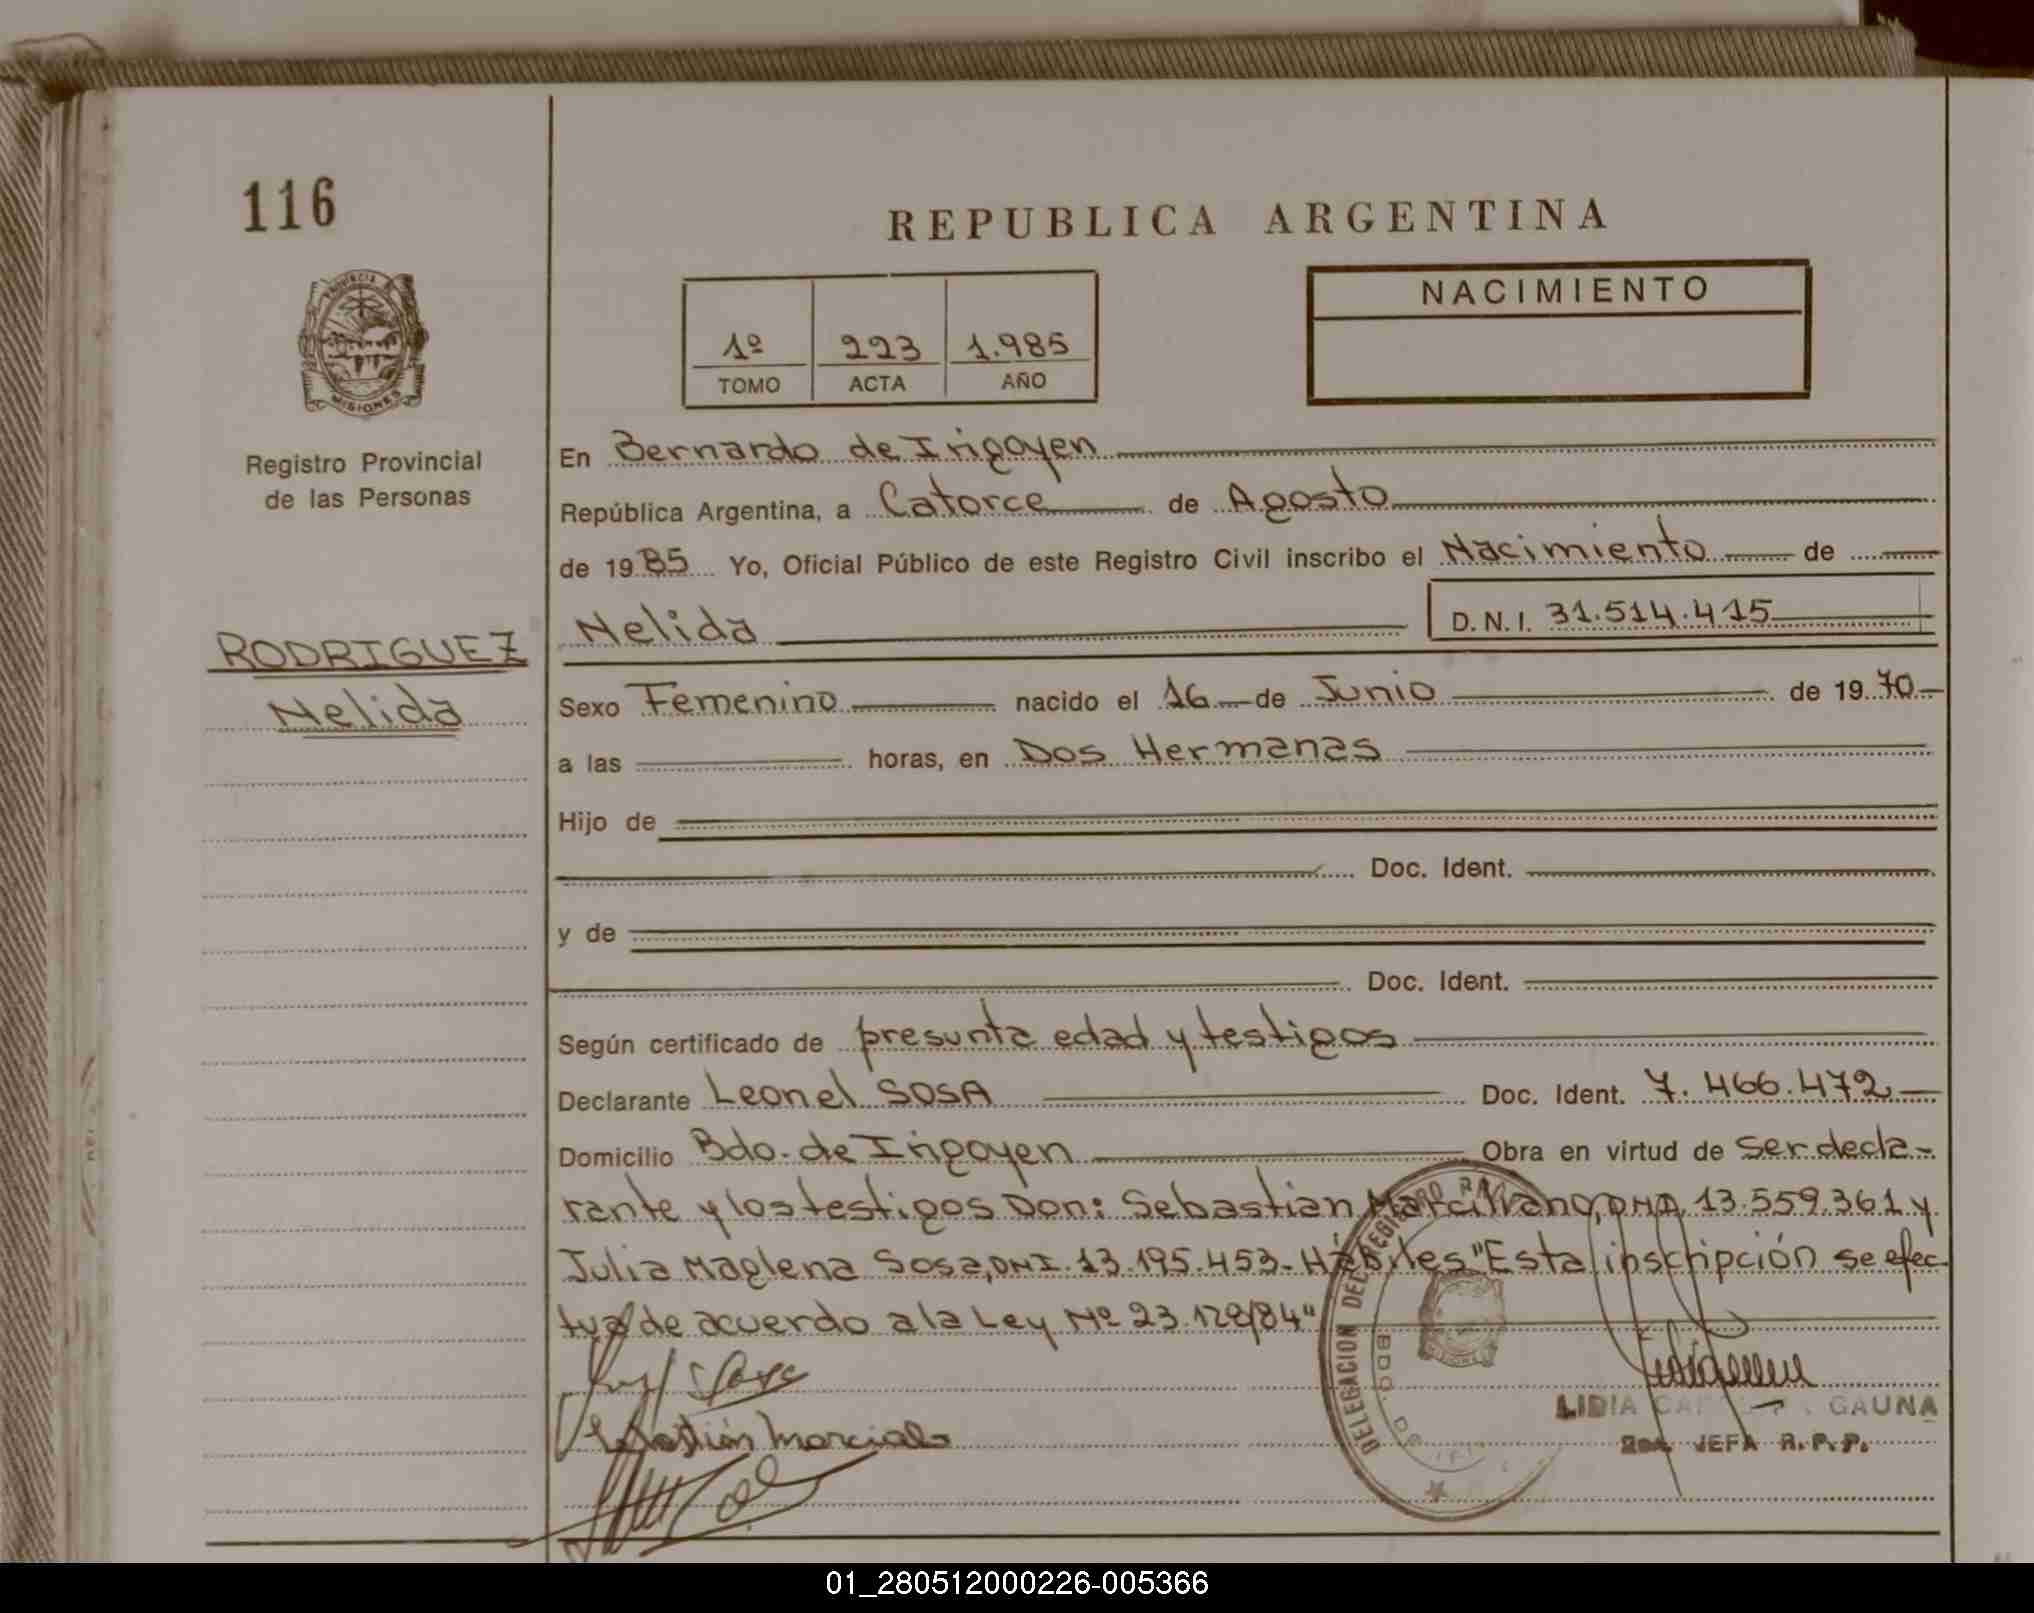 116
REPUBLICA ARGENTINA
PROVINCIA
MISIONES
Registro Provincial
de las Personas
RODRIGUEZ
Nelida
1º 223 1.985
TOMO ACTA AÑO
NACIMIENTO
En Bernardo de Irigoyen
República Argentina, a Catorce de Agosto
de 1985 Yo, Oficial Público de este Registro Civil inscribo el Nacimiento de
Nelida D.N.I. 31.514.415
Sexo Femenino nacido el 16 de Junio de 1970
a las horas, en Dos Hermanas
Hijo de
Doc. Ident.
y de
Doc. Ident.
Según certificado de presunta edad y testigos
Declarante Leonel SOSA Doc. Ident. 7.466.472
Domicilio Bdo. de Irigoyen Obra en virtud de ser decla-
rante y los testigos Don: Sebastian DNI, 13.559.361 y
Julia Maglena Sosa, DNI. 13.195.453- Hábiles "Esta inscripción se efec-
tua de acuerdo a la Ley Nº 23.128/84"
DELEGACION DEL REGISTRO
BDO. DE
Sebastián
LIDIA GAUNA
2da. JEFA R.P.P.
01_280512000226-005366